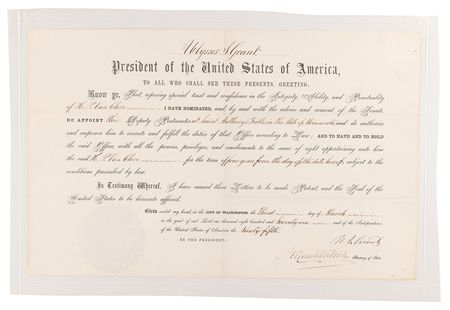 Ulysses S. Grant
President of the United States of America,
TO ALL WHO SHALL SEE THESE PRESENTS, GREETING:
Know ye, That, reposing special trust and confidence in the Integrity, Ability, and Punctuality
of H. P. Van Cleve, I HAVE NOMINATED, and, by and with the advice and consent of the Senate,
DO APPOINT him Deputy Postmaster at Saint Anthony's Falls, in the State of Minnesota, and do authorize
and empower him to execute and fulfill the duties of that Office according to Law; AND TO HAVE AND TO HOLD
the said Office, with all the powers, privileges, and emoluments to the same of right appertaining unto him
the said H. P. Van Cleve for the term of four years from the day of the date hereof, subject to the
conditions prescribed by law.
In Testimony Whereof, I have caused these Letters to be made Patent, and the Seal of the
United States to be hereunto affixed.
Given under my hand, at the CITY OF WASHINGTON, the Third day of March
in the year of our Lord one thousand eight hundred and seventy one and of the Independence
of the United States of America the Ninety fifth.
BY THE PRESIDENT:
U. S. Grant
Secretary of State.